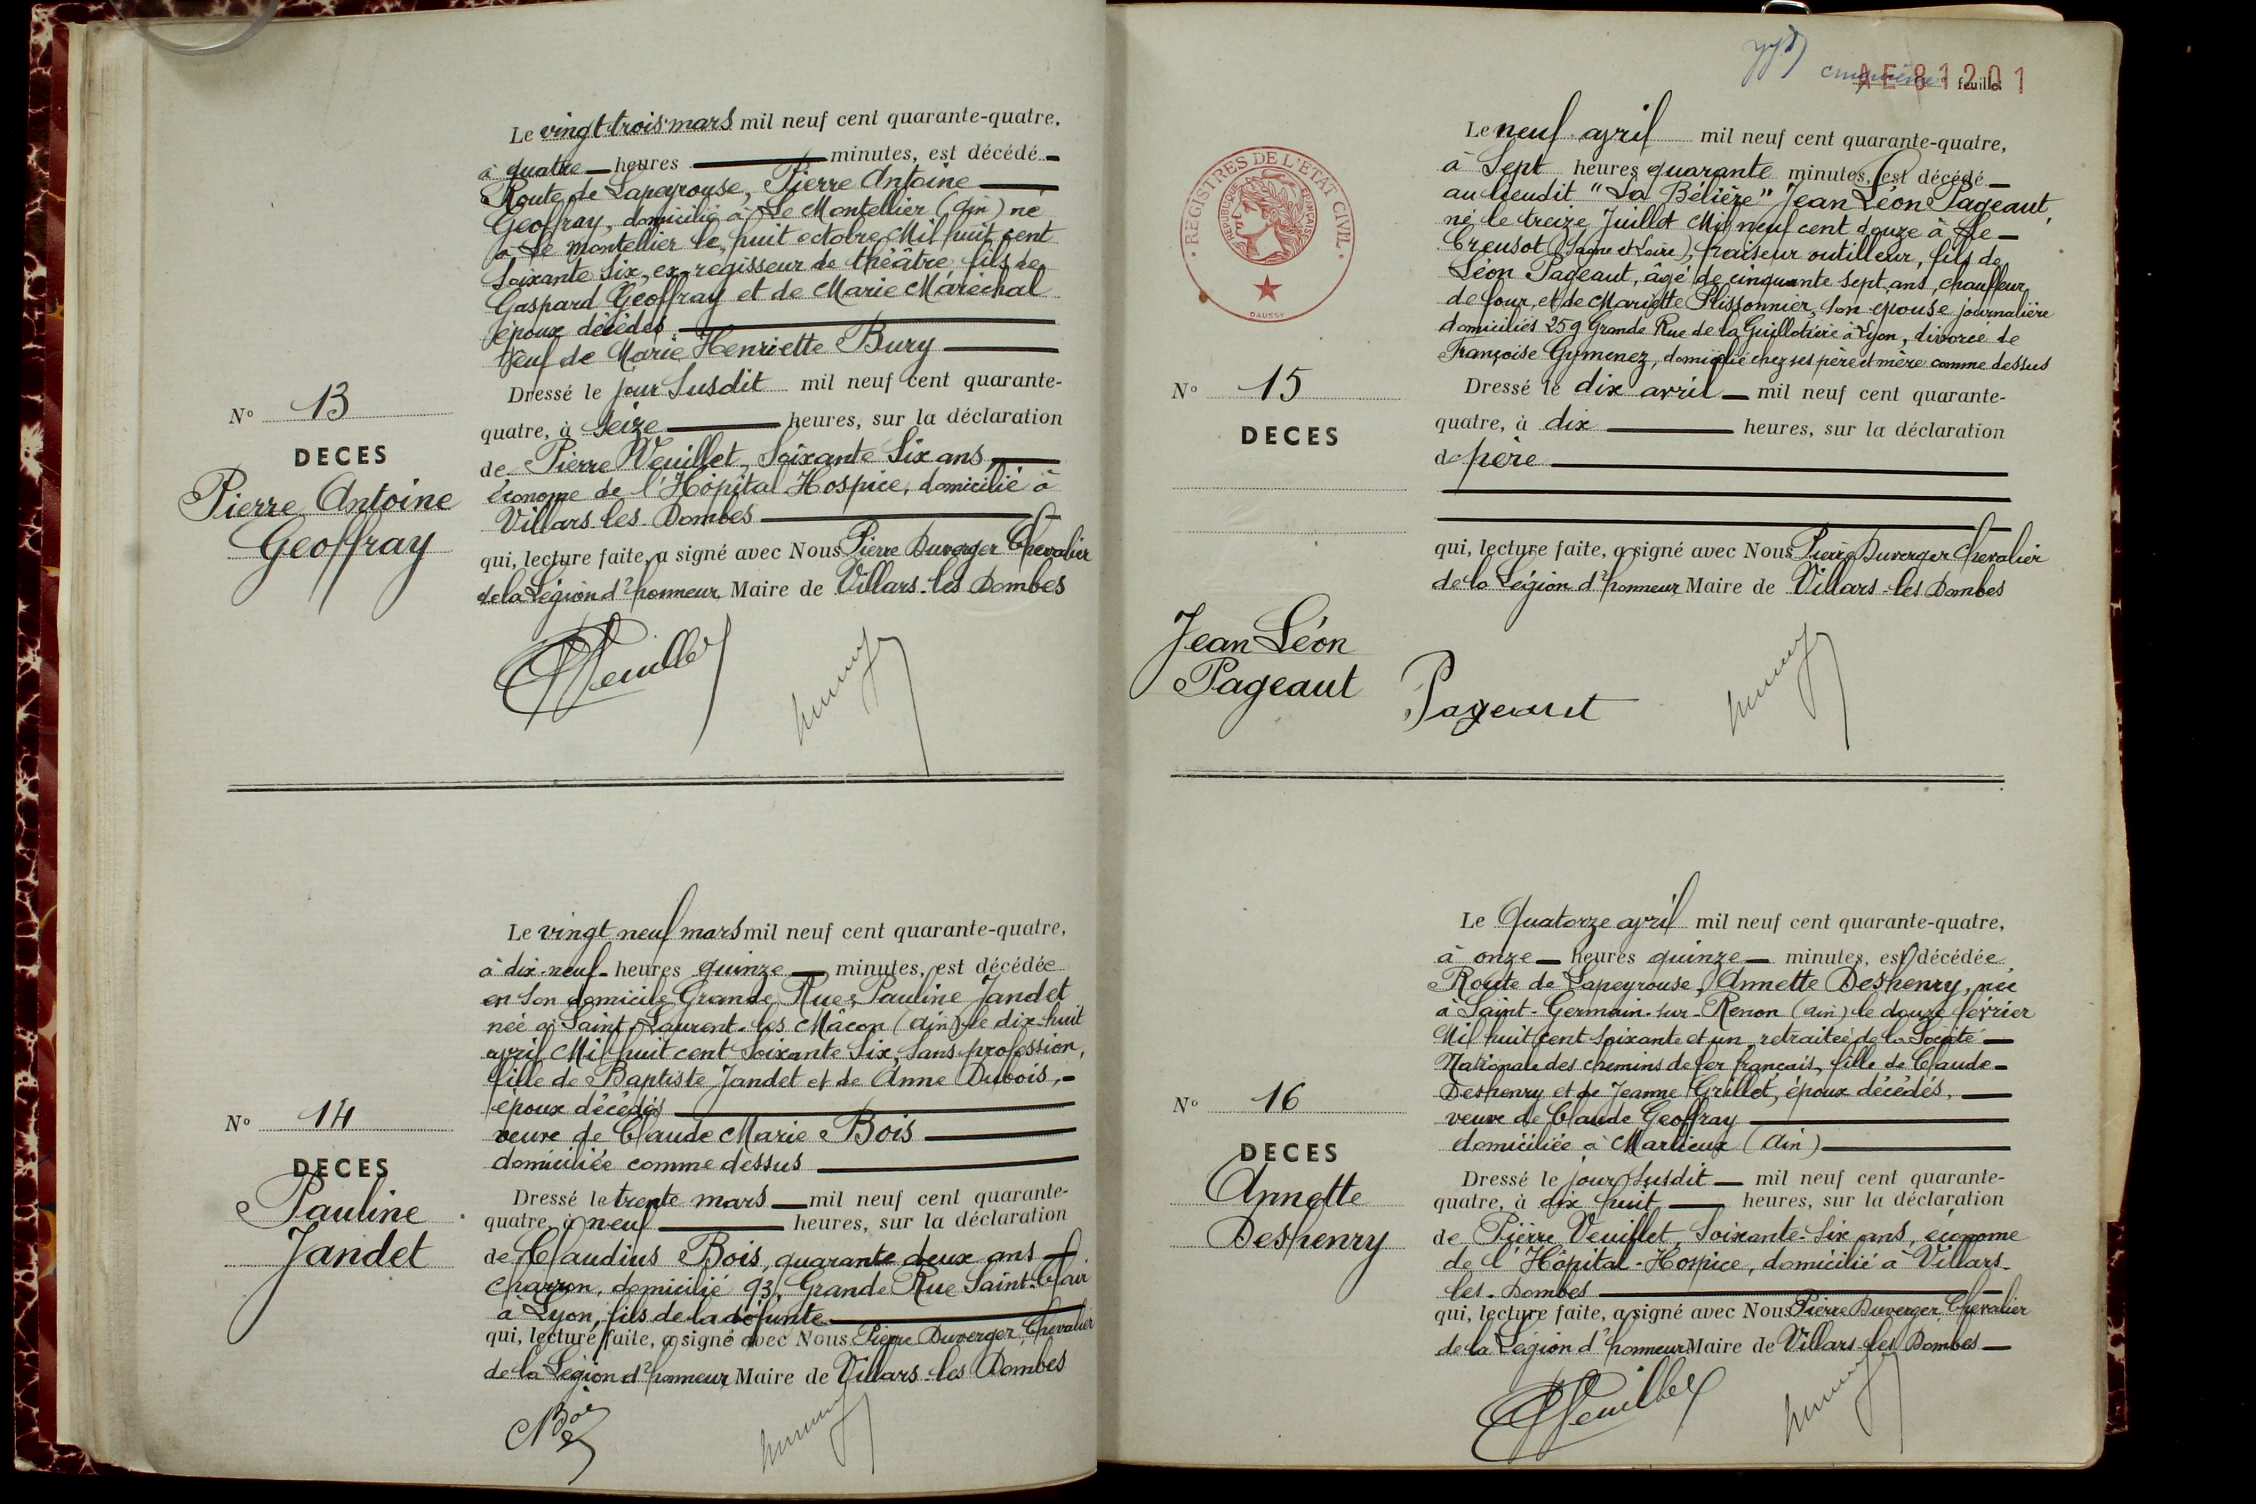 Le vingt-trois mars mil neuf cent quarante-quatre,
à quatre heures minutes, est décédé
Route de Lapeyrouse, Pierre Antoine
Geoffray, domicilié à Le Montellier (Ain) né
à Le Montellier le huit octobre Mil huit cent
Soixante Six, ex-regisseur de théâtre fils de
Gaspard Geoffray et de Marie Maréchal
époux décédés
Veuf de Marie Henriette Bury
Dressé le jour Susdit mil neuf cent quarante-
quatre, à Seize heures, sur la déclaration
de Pierre Veuillet, Soixante Six ans,
économe de l'Hôpital Hospice, domicilié à
Villars-les-Dombes
qui, lecture faite, a signé avec Nous Pierre Duverger Chevalier
de la Légion d'honneur Maire de Villars-les Dombes
No 13
DECES
Pierre Antoine
Geoffray
PVeuillet
Le vingt neuf mars mil neuf cent quarante-quatre,
à dix-neuf heures quinze minutes, est décédée
en Son domicile Grande Rue, Pauline Jandet
née à Saint-Laurent-les Mâcon (Ain) le dix-huit
avril Mil huit cent Soixante Six, Sans profession,
fille de Baptiste Jandet et de Anne Dubois,
époux décédés
veuve de Claude Marie Bois
domiciliée comme dessus
Dressé le trente mars mil neuf cent quarante-
quatre, à neuf heures, sur la déclaration
de Claudius Bois, quarante deux ans
Charron, domicilié 93, Grande Rue Saint-Clair
à Lyon, fils de la défunte
qui, lecture faite, a signé avec Nous Pierre Duverger Chevalier
de la Légion d'honneur Maire de Villars-les Dombes
No 14
DECES
Pauline
Jandet
feuillet
AE 81201
REGISTRES DE L'ETAT CIVIL
REPUBLIQUE FRANÇAISE
DAUSSY
Le neuf avril mil neuf cent quarante-quatre,
à Sept heures quarante minutes, est décédé
au lieudit "La Bélière" Jean Léon Pageaut,
né le treize Juillet Mil neuf cent douze à Le
Creusot (Saône et Loire), fraiseur outilleur, fils de
Léon Pageaut, âgé de cinquante sept ans, chauffeur
de four, et de Mariette Plissonnier, Son épouse journalière
domiciliés 259 Grande Rue de la Guillotière à Lyon, divorcé de
Françoise Gymenez, domicilié chez ses père et mère comme dessus
Dressé le dix avril mil neuf cent quarante-
quatre, à dix heures, sur la déclaration
de père
qui, lecture faite, a signé avec Nous Pierre Duverger Chevalier
de la Légion d'honneur Maire de Villars-les Dombes
No 15
DECES
Jean Léon
Pageaut
Pageaut
Le Quatorze avril mil neuf cent quarante-quatre,
à onze heures quinze minutes, est décédée
Route de Lapeyrouse, Annette Deshenry, née
à Saint-Germain-sur-Renon (Ain) le douze février
Mil huit cent soixante et un, retraitée de la Société
Nationale des chemins de fer français, fille de Claude
Deshenry et de Jeanne Grillet, époux décédés,
veuve de Claude Geoffray
domiciliée à Marlieux (Ain)
Dressé le jour Susdit mil neuf cent quarante-
quatre, à dix huit heures, sur la déclaration
de Pierre Veuillet, Soixante-Six ans, économe
de l'Hôpital-Hospice, domicilié à Villars-
les-Dombes
qui, lecture faite, a signé avec Nous Pierre Duverger Chevalier
de la Légion d'honneur Maire de Villars-les Dombes
No 16
DECES
Annette
Deshenry
PVeuillet